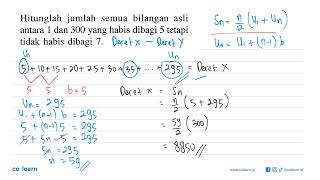 Hitunglah jumlah semua bilangan asli
antara 1 dan 300 yang habis dibagi 5 tetapi
tidak habis dibagi 7. Deret x - Deret y
Sn = n/2 (U1 + Un)
Un = U1 + (n-1) b
U1
Un
5 + 10 + 15 + 20 + 25 + 30 + 35 + ... + 295 = Deret x
5 5 b = 5
Un = 295
U1 + (n-1) b = 295
5 + (n-1) 5 = 295
5 + 5n - 5 = 295
5n = 295
n = 59
Deret x = Sn
= n/2 (5 + 295)
= 59/2 (300)
= 8850
co learn
www.colearn.id
@colearn.id